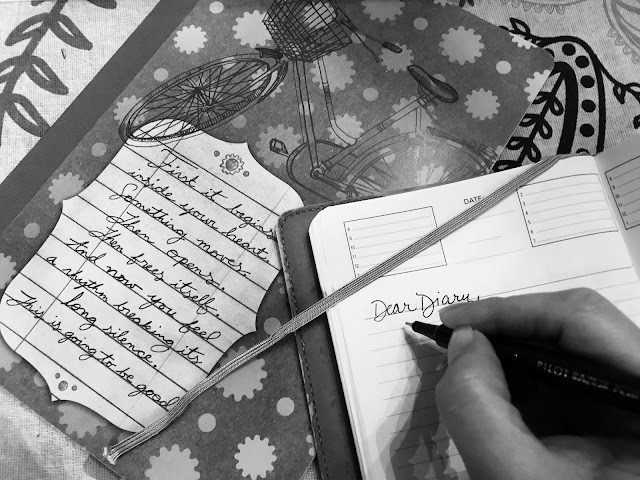 First it begins
inside your heart.
Something moves.
Then opens.
Then frees itself.
And now you feel
a rhythm breaking its
long silence.
This is going to be good
DATE
Dear Diary,
PILOT